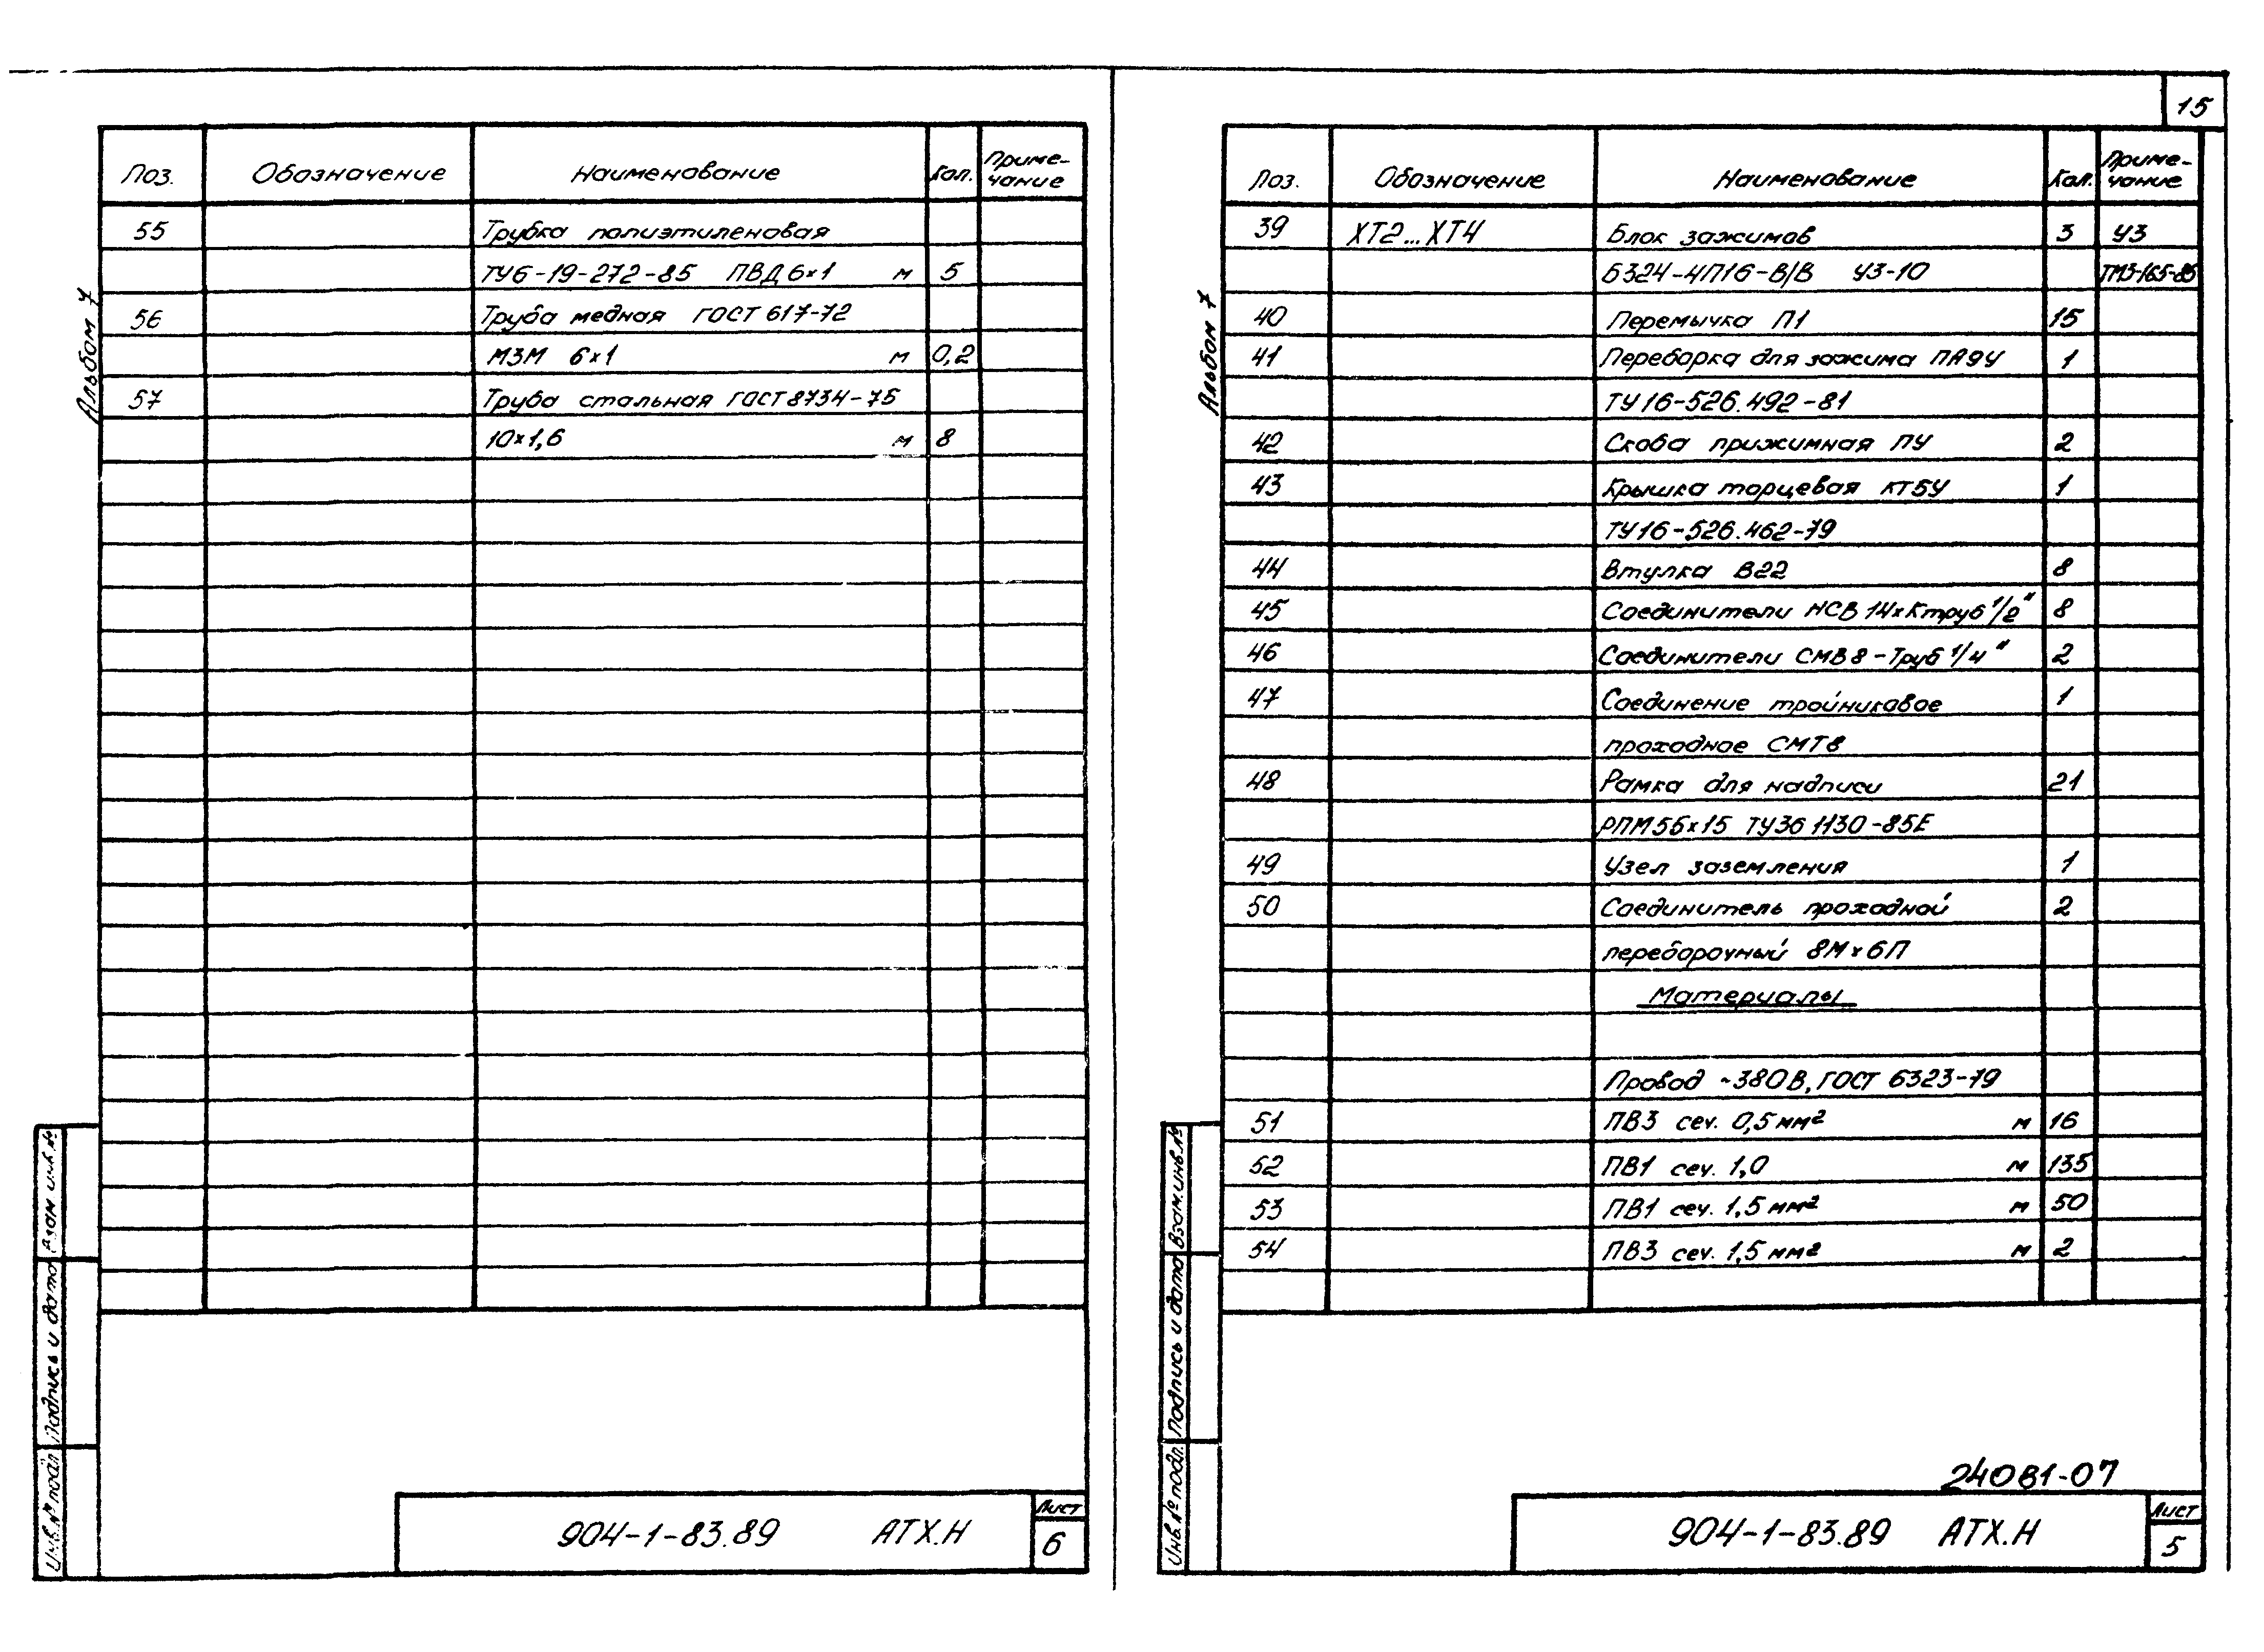 Поз. Обозначение Наименование Кол. Приме-
чание
55 Трубка полиэтиленовая
ТУ6-19-272-85 ПВД 6×1 м 5
56 Труба медная ГОСТ 617-72
М3М 6×1 м 0,2
57 Труба стальная ГОСТ 8734-75
10×1,6 м 8
Альбом 7
Взам. инв. №
Подпись и дата
Инв. № подл.
904-1-83.89 АТХ.Н
Лист
6
15
Поз. Обозначение Наименование Кол. Приме-
чание
39 ХТ2...ХТ4 Блок зажимов 3 У3
Б324-4П16-В/В У3-10 ТМ3-165-85
40 Перемычка П1 15
41 Переборка для зажима ПА9У 1
ТУ16-526.492-81
42 Скоба прижимная ПУ 2
43 Крышка торцевая КТ5У 1
ТУ16-526.462-79
44 Втулка В22 8
45 Соединители НСВ 14×Ктруб 1/2" 8
46 Соединители СМВ 8-Труб 1/4" 2
47 Соединение тройниковое 1
проходное СМТ8
48 Рамка для надписи 21
РПМ 55×15 ТУ36 1130-85Е
49 Узел заземления 1
50 Соединитель проходной 2
переборочный 8М×6П
Материалы
Провод ~380В, ГОСТ 6323-79
51 ПВ3 сеч. 0,5 мм² м 16
52 ПВ1 сеч. 1,0 м 135
53 ПВ1 сеч. 1,5 мм² м 50
54 ПВ3 сеч. 1,5 мм² м 2
Альбом 7
Взам. инв. №
Подпись и дата
Инв. № подл.
24081-07
904-1-83.89 АТХ.Н
Лист
5